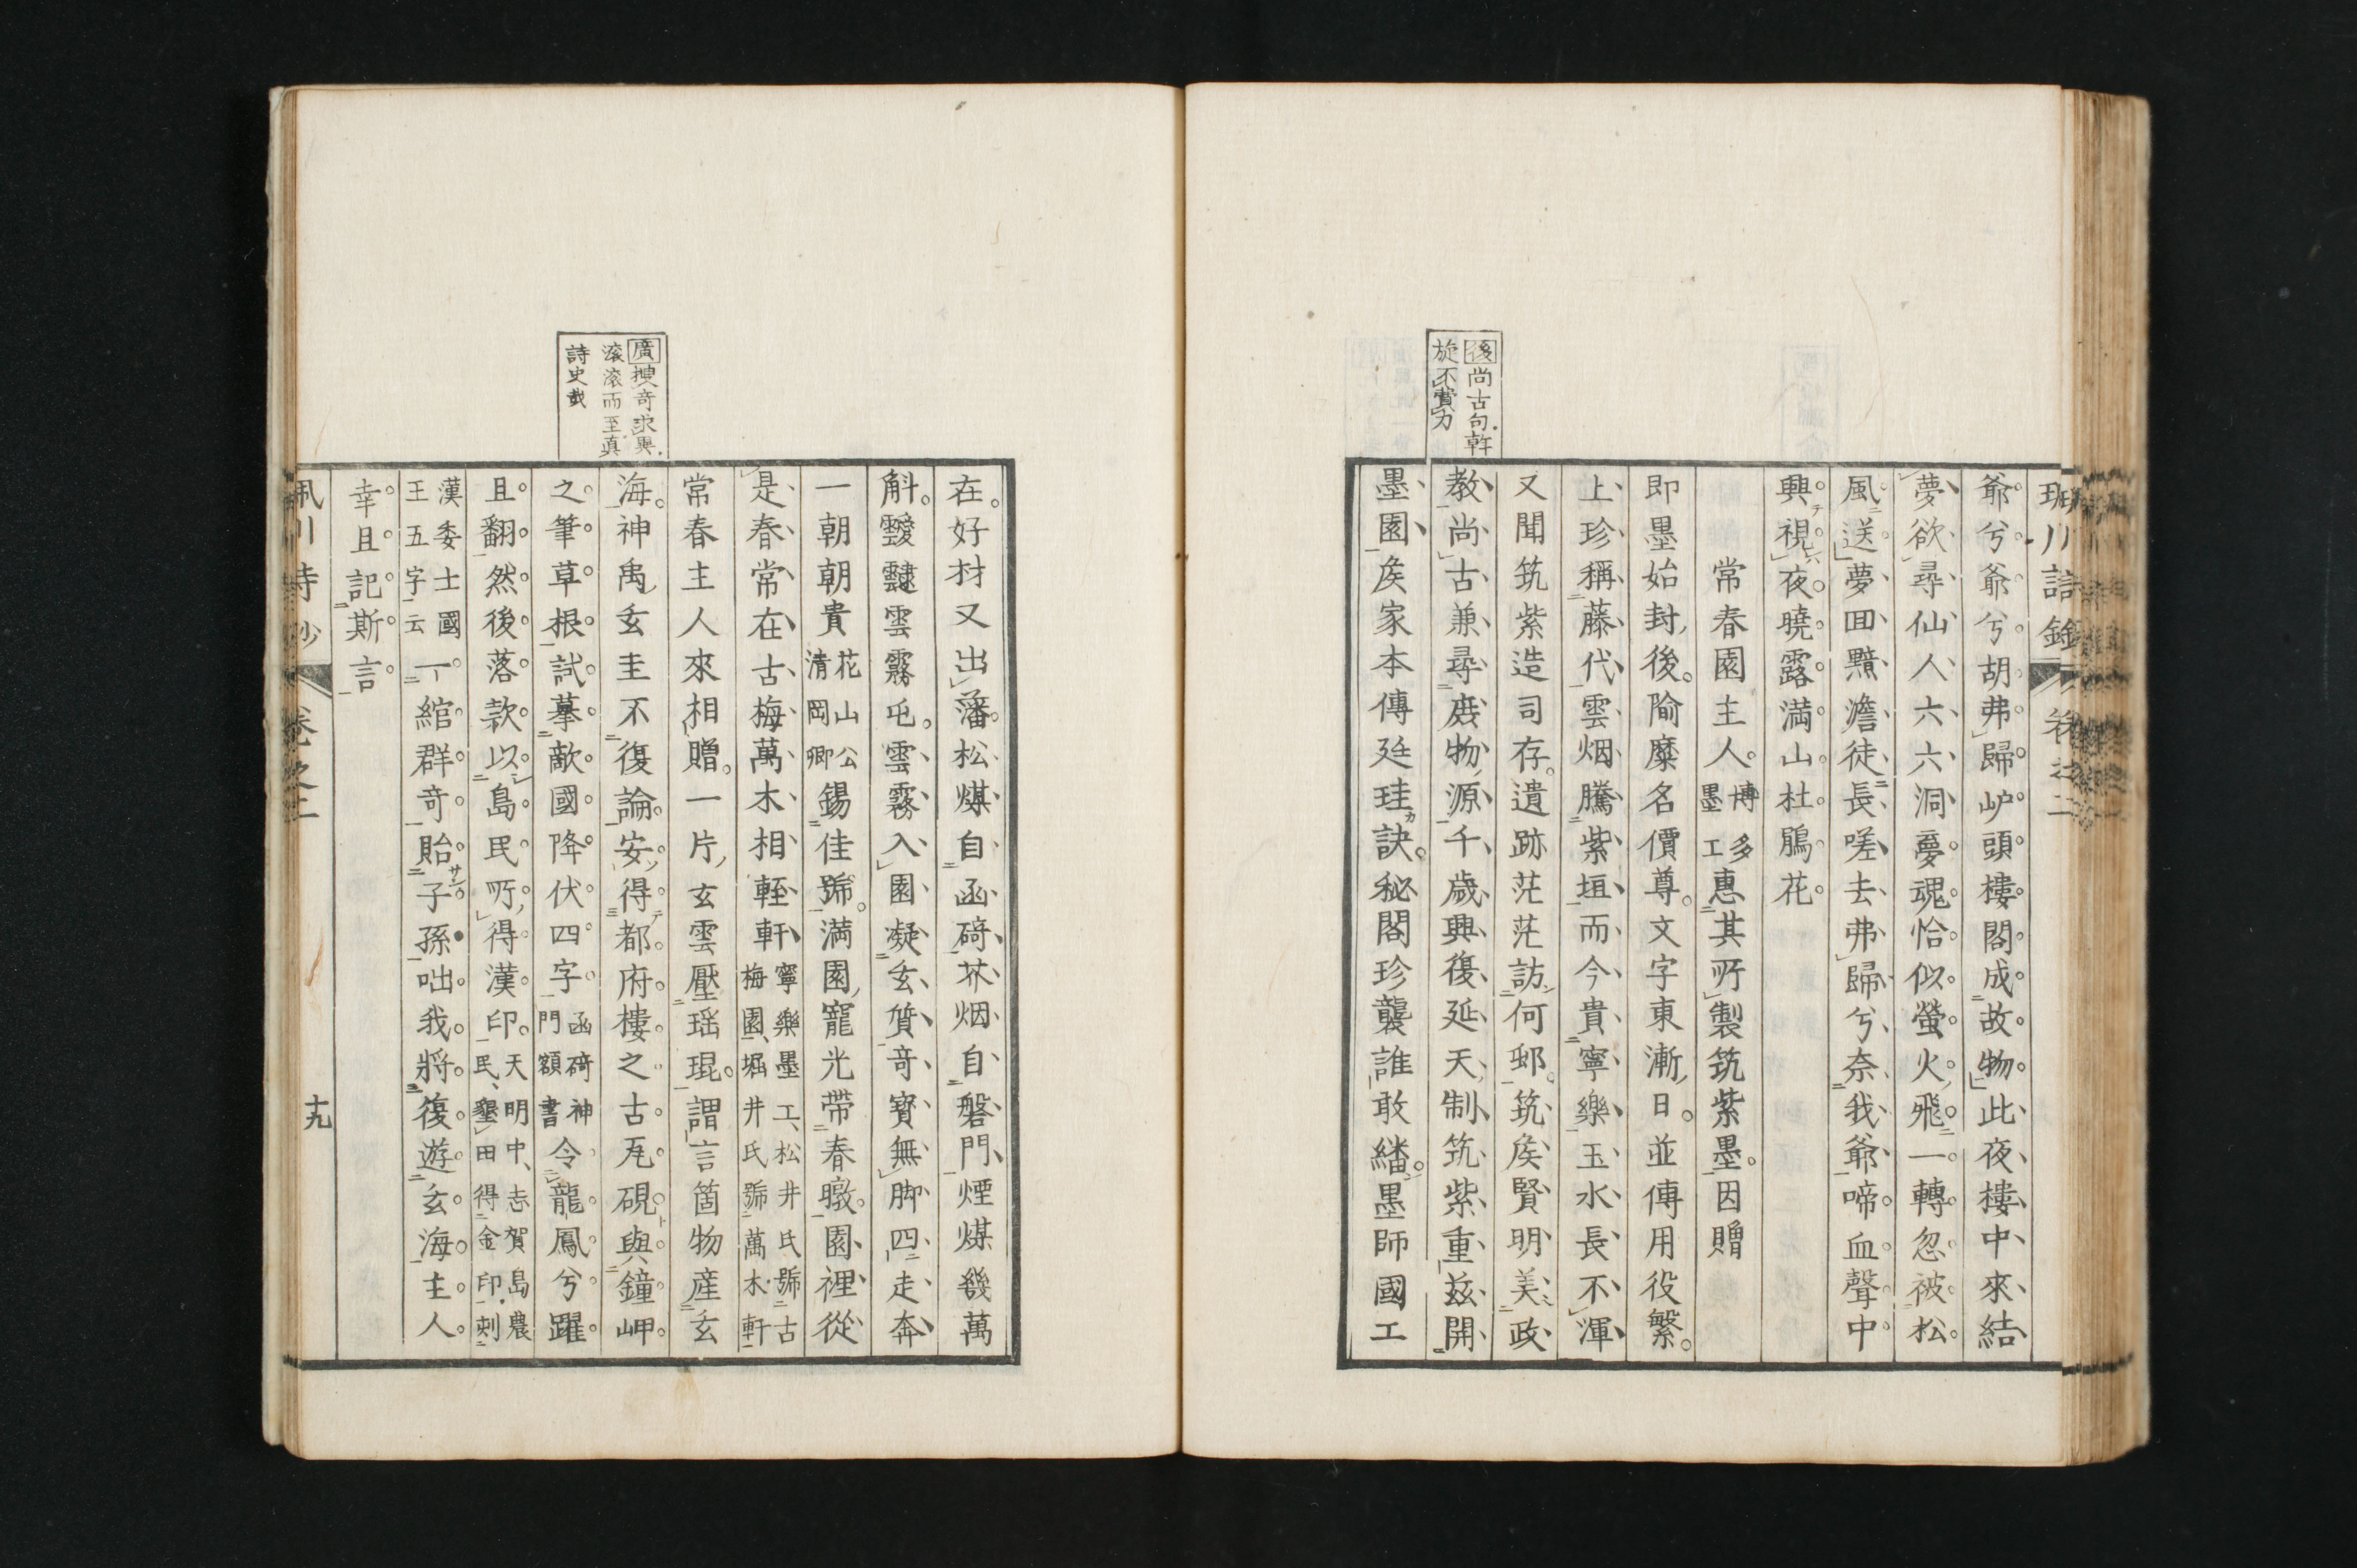 爺兮爺兮胡弗歸岵頭樓閣成故物此夜樓中來結
夢欲尋仙人六六洞夢魂恰似螢火飛一轉忽被松
風送夢回黯澹徒長嗟去弗歸兮奈我爺啼血聲中
興視夜曉露満山杜鵑花
常春園主人博多墨工惠其所製筑紫墨因贈
即墨始封後隃糜名價尊文字東漸日並傳用役繁
上珍稱藤代雲烟騰紫垣而今貴寧樂玉水長不渾
又聞筑紫造司存遺跡茫茫訪何邨筑矦賢明美政
教尚古兼尋廢物源千歳興復延天制筑紫重茲開
墨園矦家本傳廷珪訣秘閣珍襲誰敢繙墨師國工
後尚古句幹
旋不費力
在好材又出藩松煤自函碕芥烟自磐門煙煤幾萬
斛靉靆雲霧屯雲霧入園凝玄質奇寳無脚四走奔
一朝朝貴花山公清岡卿錫佳號満園寵光帶春暾園裡從
是春常在古梅萬木相輊軒寧樂墨工松井氏號古梅園堀井氏號萬木軒
常春主人來相贈一片玄雲壓瑶琨謂言箇物産玄
海神禹玄圭不復論安得都府樓之古瓦硯與鐘岬
之筆草根試摹敵國降伏四字函碕神門額書令龍鳳兮躍
且翻然後落款以島民所得漢印天明中志賀島農民墾田得金印刻
漢委士國王五字云一綰群奇貽子孫咄我將復遊玄海主人
幸且記斯言
廣捜奇求異
滚滚而至真
詩史哉
卷之二
十九